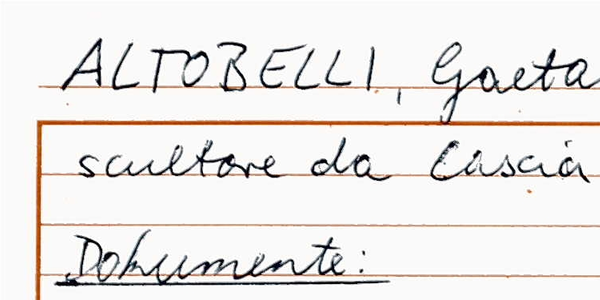 ALTOBELLI, Gaeta
scultore da Cascia
Dokumente: